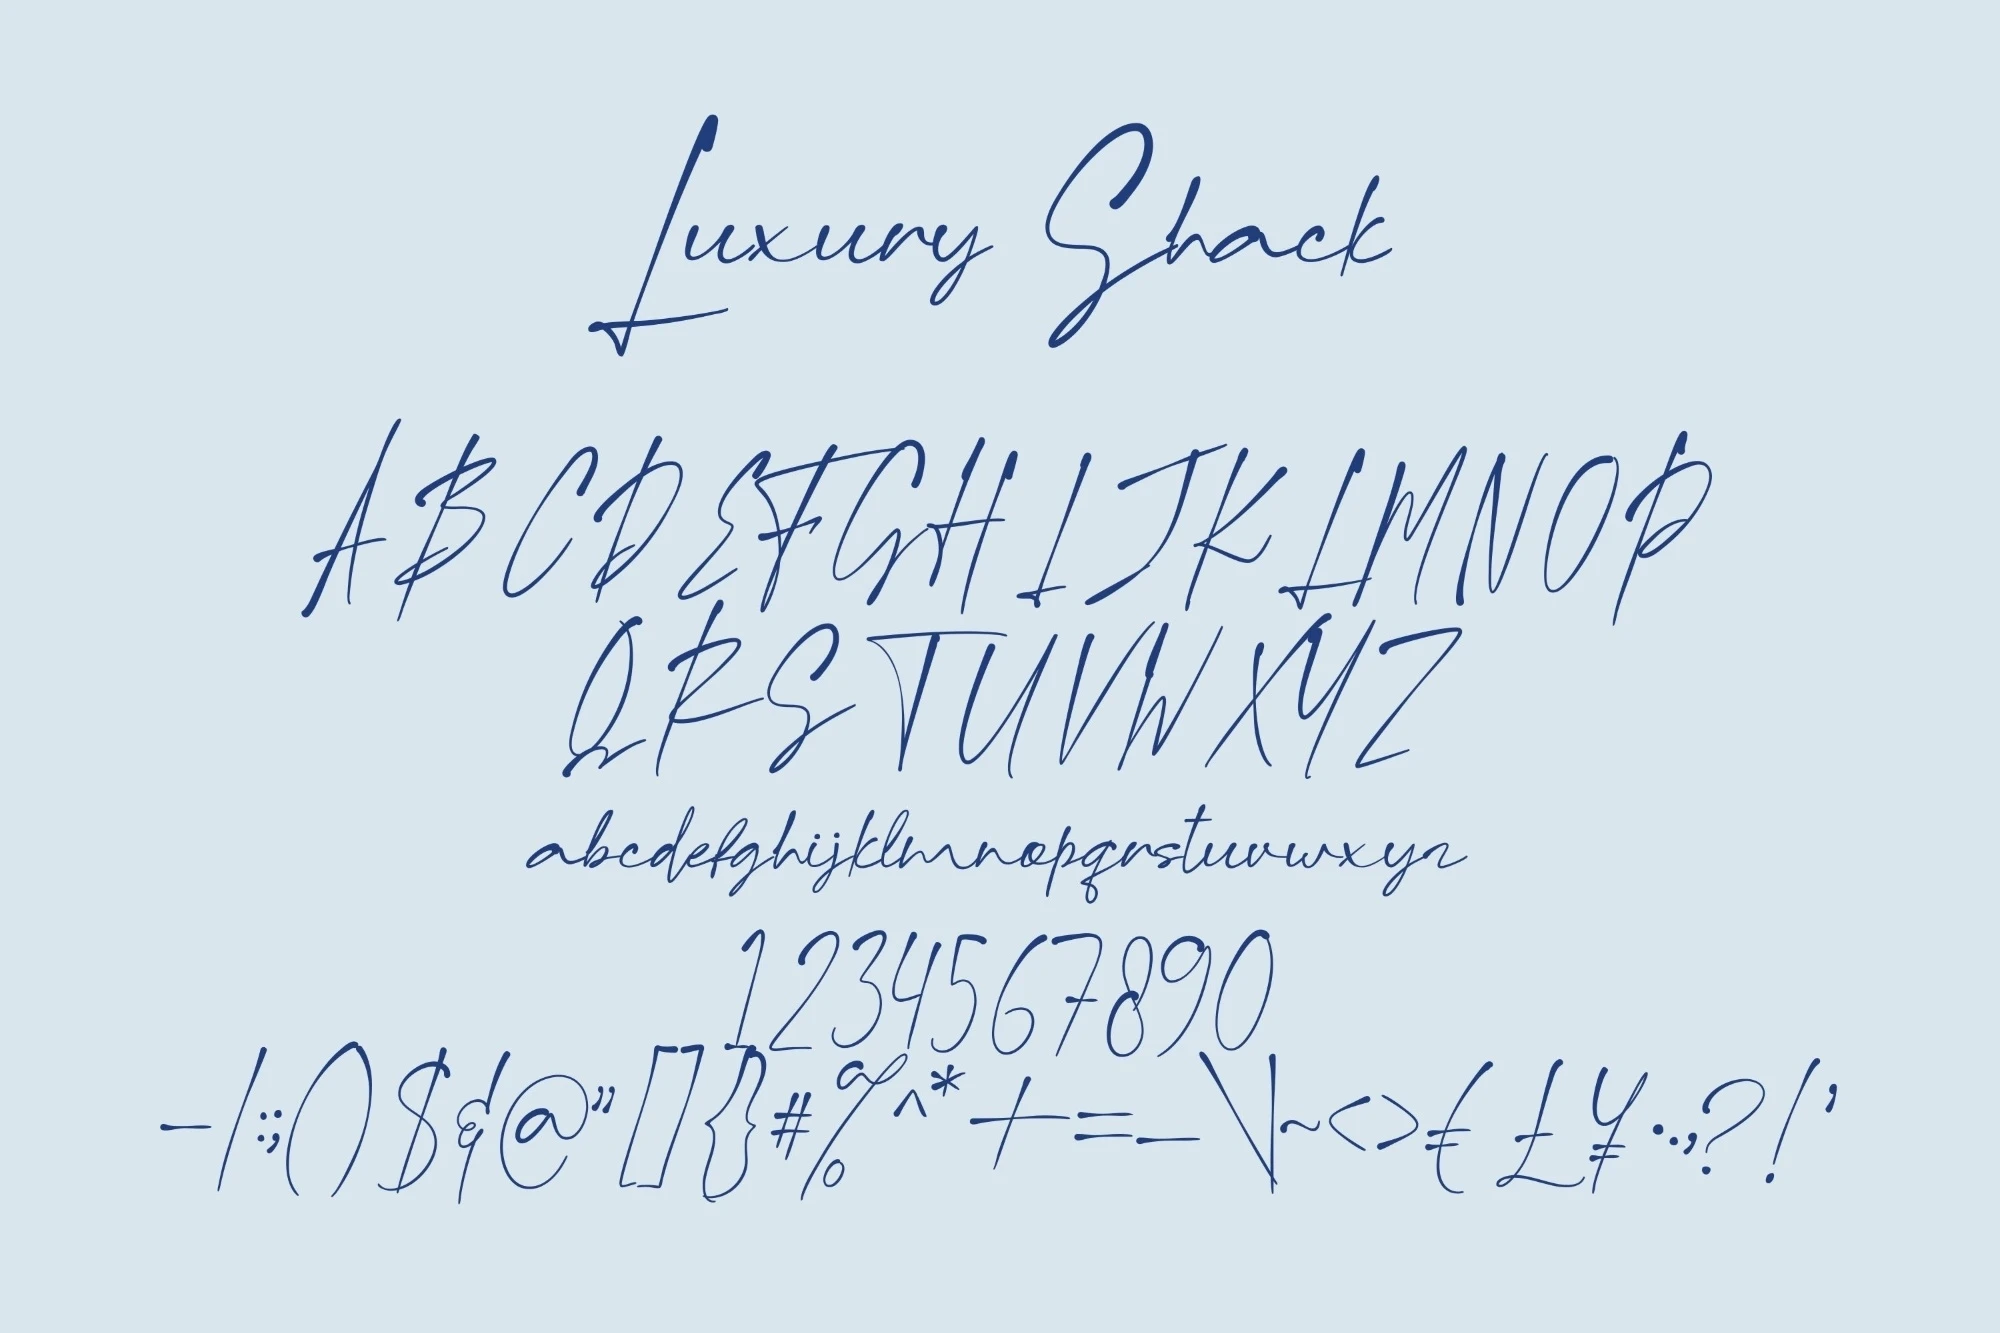 Luxury Shack
ABCDEFGHIJKLMNOP
QRSTUVWXYZ
abcdefghijklmnopqrstuvwxyz
1234567890
-/:;()$&@"[]{}#%^*+=_\|~<>€£¥·.,?!'